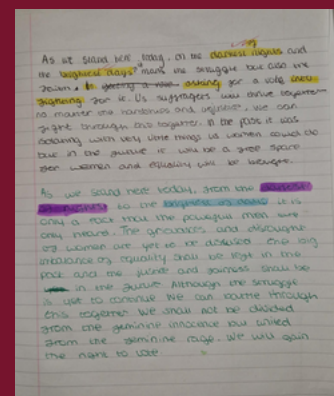 As we stand here today, on the darkest nights and
the brightest days mark the struggle but also the
asking for a vote
fighting for it. Us suffragets will thrive together
no matter the hardships and we can
fight through this together. In the past it was
with very little things us women could do
but in the future it will be a free space
for women and equality will be
As we stand here today, from the darkest
to the brightest of days it is
only a fact that the powerful men are
only heard. The grievances and
of women are yet to be the big
of equality shall be left in the
past and the and fairness shall be
in the future Although the struggle
is yet to continue we can battle through
this together we shall not be divided
from the feminine innocence but united
from the feminine rage. We will gain
the right to vote